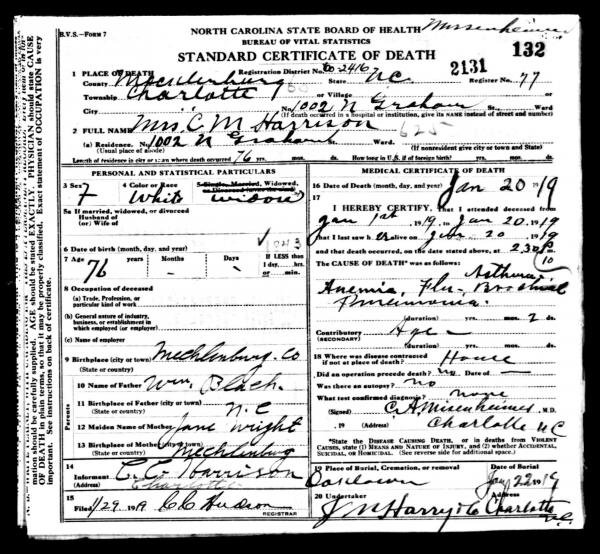 NORTH CAROLINA STATE BOARD OF HEALTH Misenheimer
B.V.S.—FORM 7
BUREAU OF VITAL STATISTICS
STANDARD CERTIFICATE OF DEATH 132
1 PLACE OF DEATH Registration District No. 60-2416 2131
County Mecklenburg State N.C. Register No. 77
Township Charlotte or Village
City No. 1002 N Graham St., Ward
(If death occurred in a hospital or institution, give its NAME instead of street and number)
2 FULL NAME Mrs. C. M. Harrison
(a) Residence. No. 1002 N Graham St., Ward
(Usual place of abode) (If nonresident give city or town and State)
Length of residence in city or town where death occurred 76 yrs. mos. ds. How long in U.S. if of foreign birth? yrs. mos. ds.
PERSONAL AND STATISTICAL PARTICULARS
3 Sex F
4 Color or Race White
5 Single, Married, Widowed, or Divorced Widow
5a If married, widowed, or divorced
Husband of
(or) Wife of
6 Date of birth (month, day, and year) 1843
7 Age 76 years Months – Days – If LESS than 1 day, hrs. or min.
8 Occupation of deceased
(a) Trade, Profession, or particular kind of work
(b) General nature of industry, business, or establishment in which employed (or employer)
(c) Name of employer
9 Birthplace (city or town) Mecklenburg Co
(State or country)
Parents
10 Name of Father Wm. Black
11 Birthplace of Father (city or town)
(State or country) N.C
12 Maiden Name of Mother Jane Wright
13 Birthplace of Mother (city or town)
(State or country) Mecklenburg
14
Informant C. C. Harrison
(Address) Charlotte
15
Filed 1/29 1919 C C Hudson
REGISTRAR
MEDICAL CERTIFICATE OF DEATH
16 Date of Death (month, day, and year) Jan 20 1919
17
I HEREBY CERTIFY, That I attended deceased from
Jan 1st 1919, to Jan 20, 1919
that I last saw her alive on Jan 20 1919
and that death occurred, on the date stated above, at 2:30 P m.
The CAUSE OF DEATH* was as follows: Asthma
Anemia, Flu- Bronchial
Pneumonia.
(duration) yrs. mos. 2 ds.
Contributory Age –
(SECONDARY)
(duration) yrs. mos. ds.
18 Where was disease contracted
if not at place of death? House
Did an operation precede death? no Date of —
Was there an autopsy? no
What test confirmed diagnosis? none
(Signed) C. A. Misenheimer, M.D.
, 19 (Address) Charlotte NC
*State the DISEASE CAUSING DEATH, or in deaths from VIOLENT CAUSES, state (1) MEANS AND NATURE OF INJURY, and (2) whether ACCIDENTAL, SUICIDAL, or HOMICIDAL. (See reverse side for additional space.)
19 Place of Burial, Cremation, or removal Date of Burial
Jan 22 1919
20 Undertaker
J M Harry & Co Charlotte N.C.